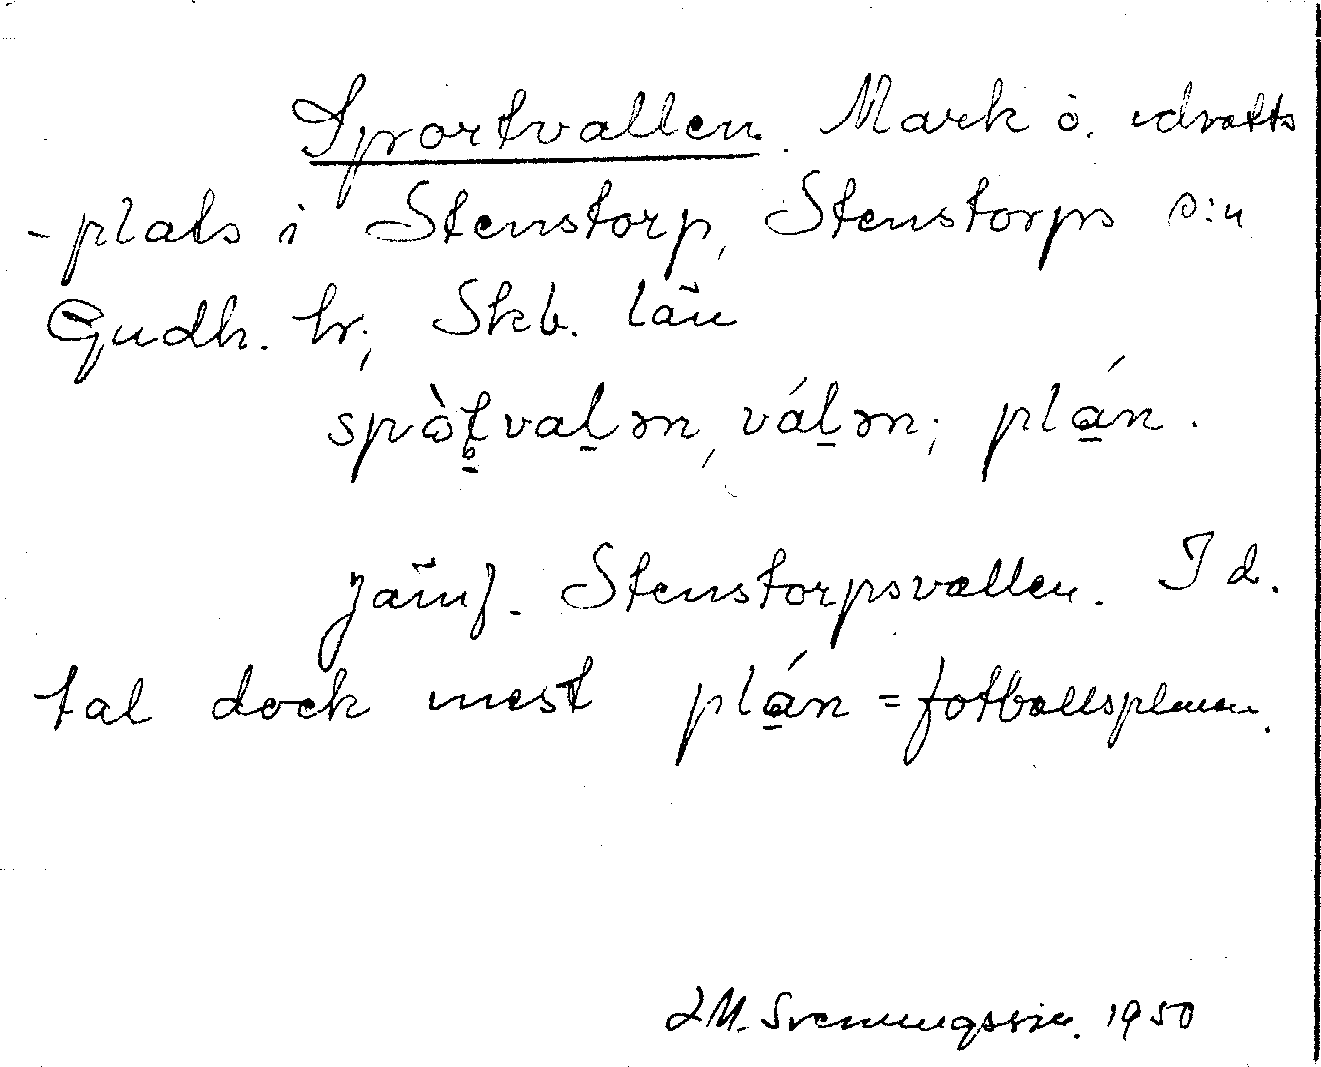 Sportvallen. Mark o. idrotts
-plats i Stenstorp, Stenstorps s:n
Gudh. hr, Skb. län
spòt̥val̠ən, vál̠ən; plá̠n.
jämf. Stenstorpsvallen. I d.
tal dock mest plá̠n = fotbollsplanen.
LM. Svenungsson. 1950